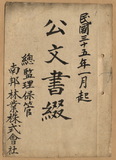 民國三十五年一月起
公文書綴
總監理保管
南邦林業株式會社